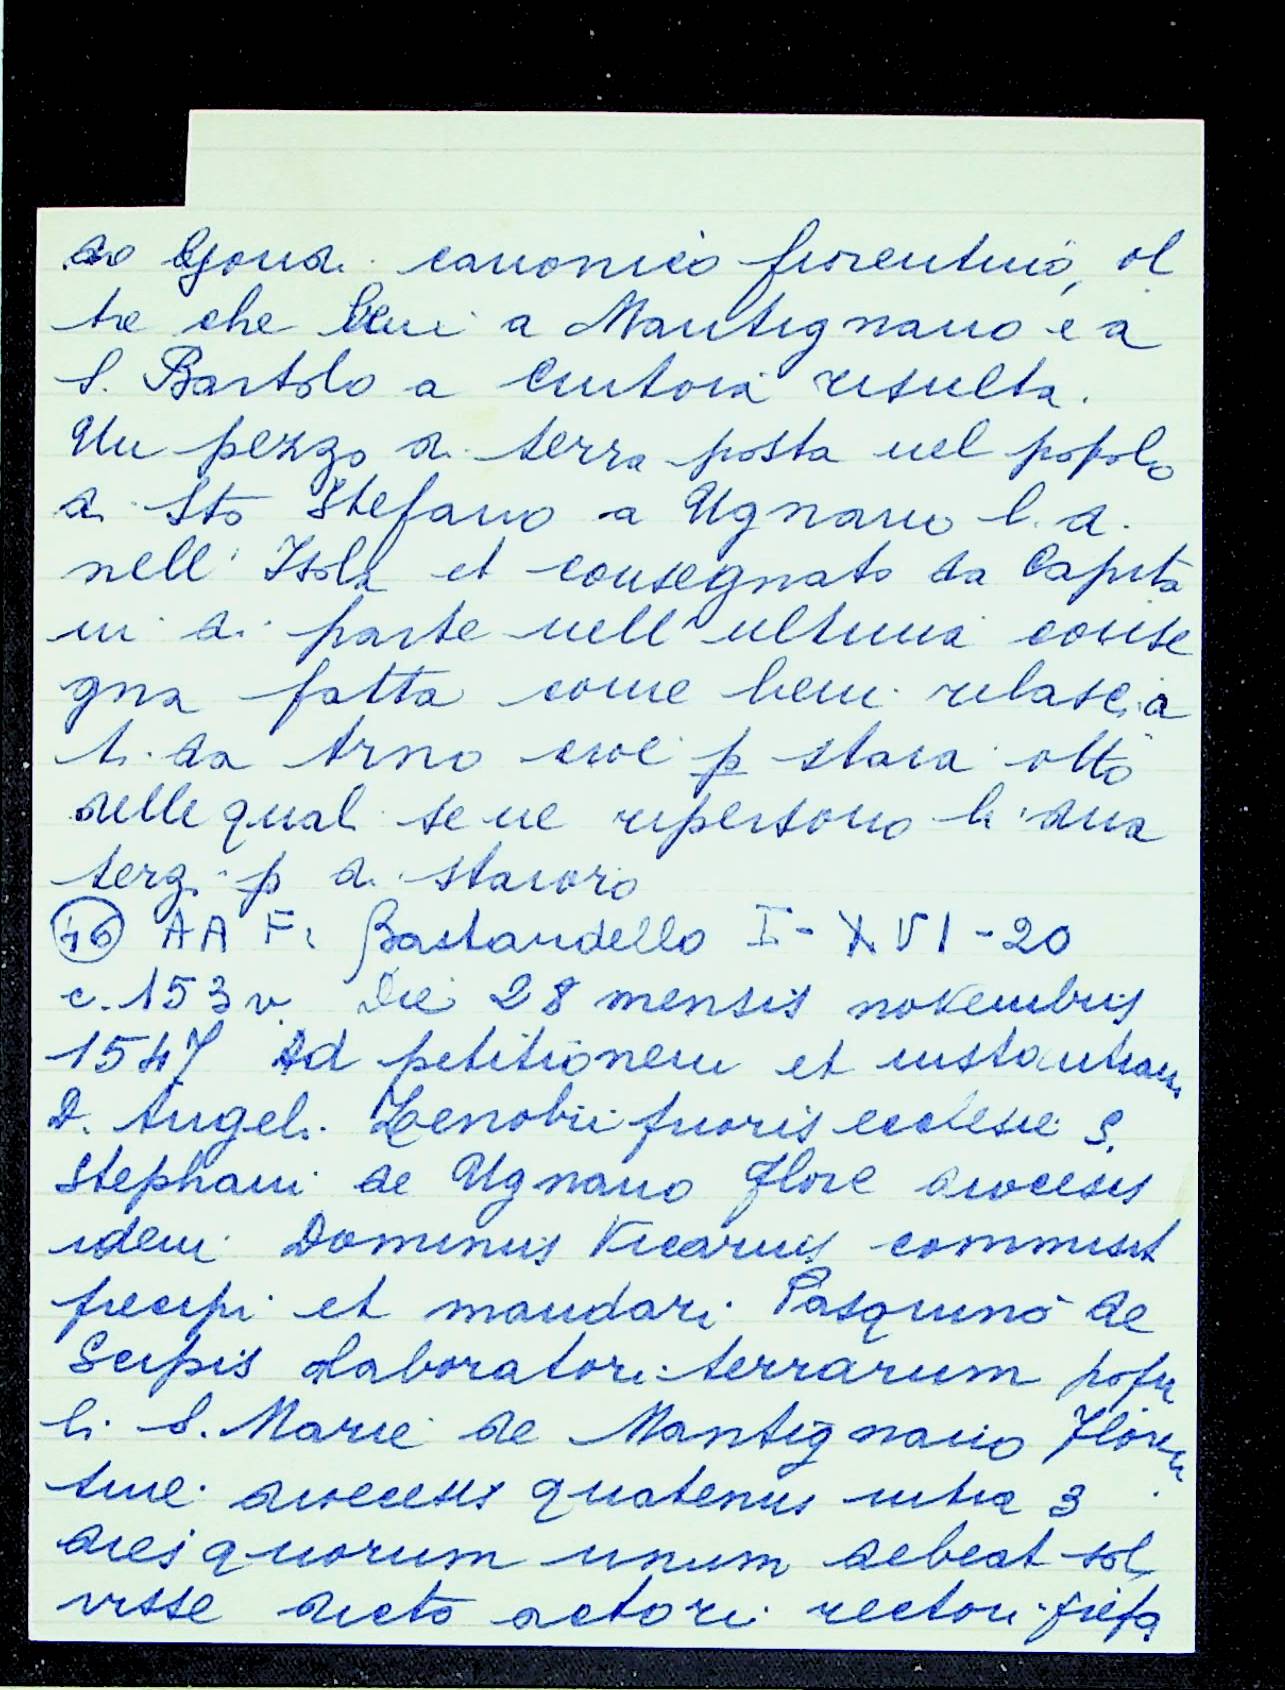 do Gondi canonico fiorentino, ol
tre che beni a Mantignano e a
S. Bartolo a Cintoia risulta.
Un pezzo di terra posta nel popolo
di Sto Stefano a Ugnano l. d.
nell'Isola et consegnato da Capita
ni di parte nell'ultima conse
gna fatta come beni rilascia
ti da Arno cioè p staia otto
delle quali se ne ripersono li dua
terzi p di staioro
46 AAFi Bastardello I-XVI-20
c. 153v Die 28 mensis novembris
1547 Ad petitionem et instantiam
D. Angeli Zenobii prioris ecclesie S.
Stephani de Ugnano Flore diocesis
idem Dominus Vicarius commisit
precipi et mandari Pasquino de
Serpis laboratori terrarum popu
li S. Marie de Mantignano Floren
tine diocesis quatenus intra 3
dies quorum unum debeat sol
visse dicto actori rectori prefa